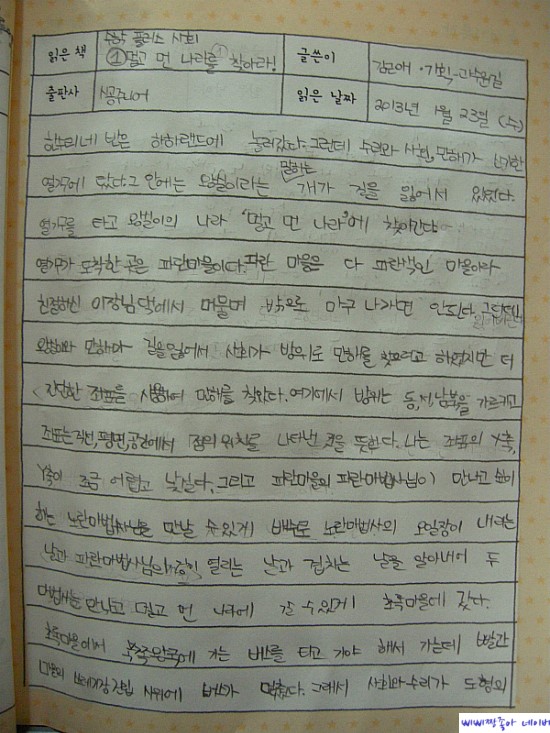 읽은 책
수학 플러스 사회
① 멀고 먼 나라를 찾아라!
글쓴이
김근애 · 기획-과수원길
출판사
시공주니어
읽은 날짜
2013년 1월 23일 (수)
한수리네 반은 하하랜드에 놀러갔다. 그런데 수리와 사회, 만해가 신기한
열기구에 탔다. 그 안에는 왕발이라는 말하는 개가 길을 잃어서 있었다.
열기구를 타고 왕발이의 나라 '멀고 먼 나라'에 찾아간다.
열기구가 도착한 곳은 파란마을이다. 파란 마을은 다 파란색인 마을이라
친절하신 이장님댁에서 머물며 밖으로 마구 나가면 안된다.
왕발와 만해마 길을 잃어서 사회가 방위로 만해를 찾으려고 하였지만 더
간단한 좌표를 사용하여 만해를 찾았다. 여기에서 방위는 동,서,남,북을 가르키고
좌표는 직선, 평면, 공간에서 점의 위치를 나타낸 것을 뜻한다. 나는 좌표의 X축,
Y축이 조금 어렵고 낯설다. 그리고 파란마을의 파란마법사님이 만나고 싶어
하는 노란마법사님을 만날 수 있게 배수로 노란마법사의 오일장이 내려는
날과 파란마법사님의 열리는 날과 겹치는 날을 알아내어 두
마법사는 만나고 멀고 먼 나라에 갈 수 있게 초록마을에 갔다.
초록마을에서 북쪽왕국에 가는 버스를 타고 가야 해서 가는데 빨간
마을의 쓰레기장 진입 시위에 버스가 멈췄다. 그래서 사회와 수리가 도형의
삐삐짱좋아 네이버